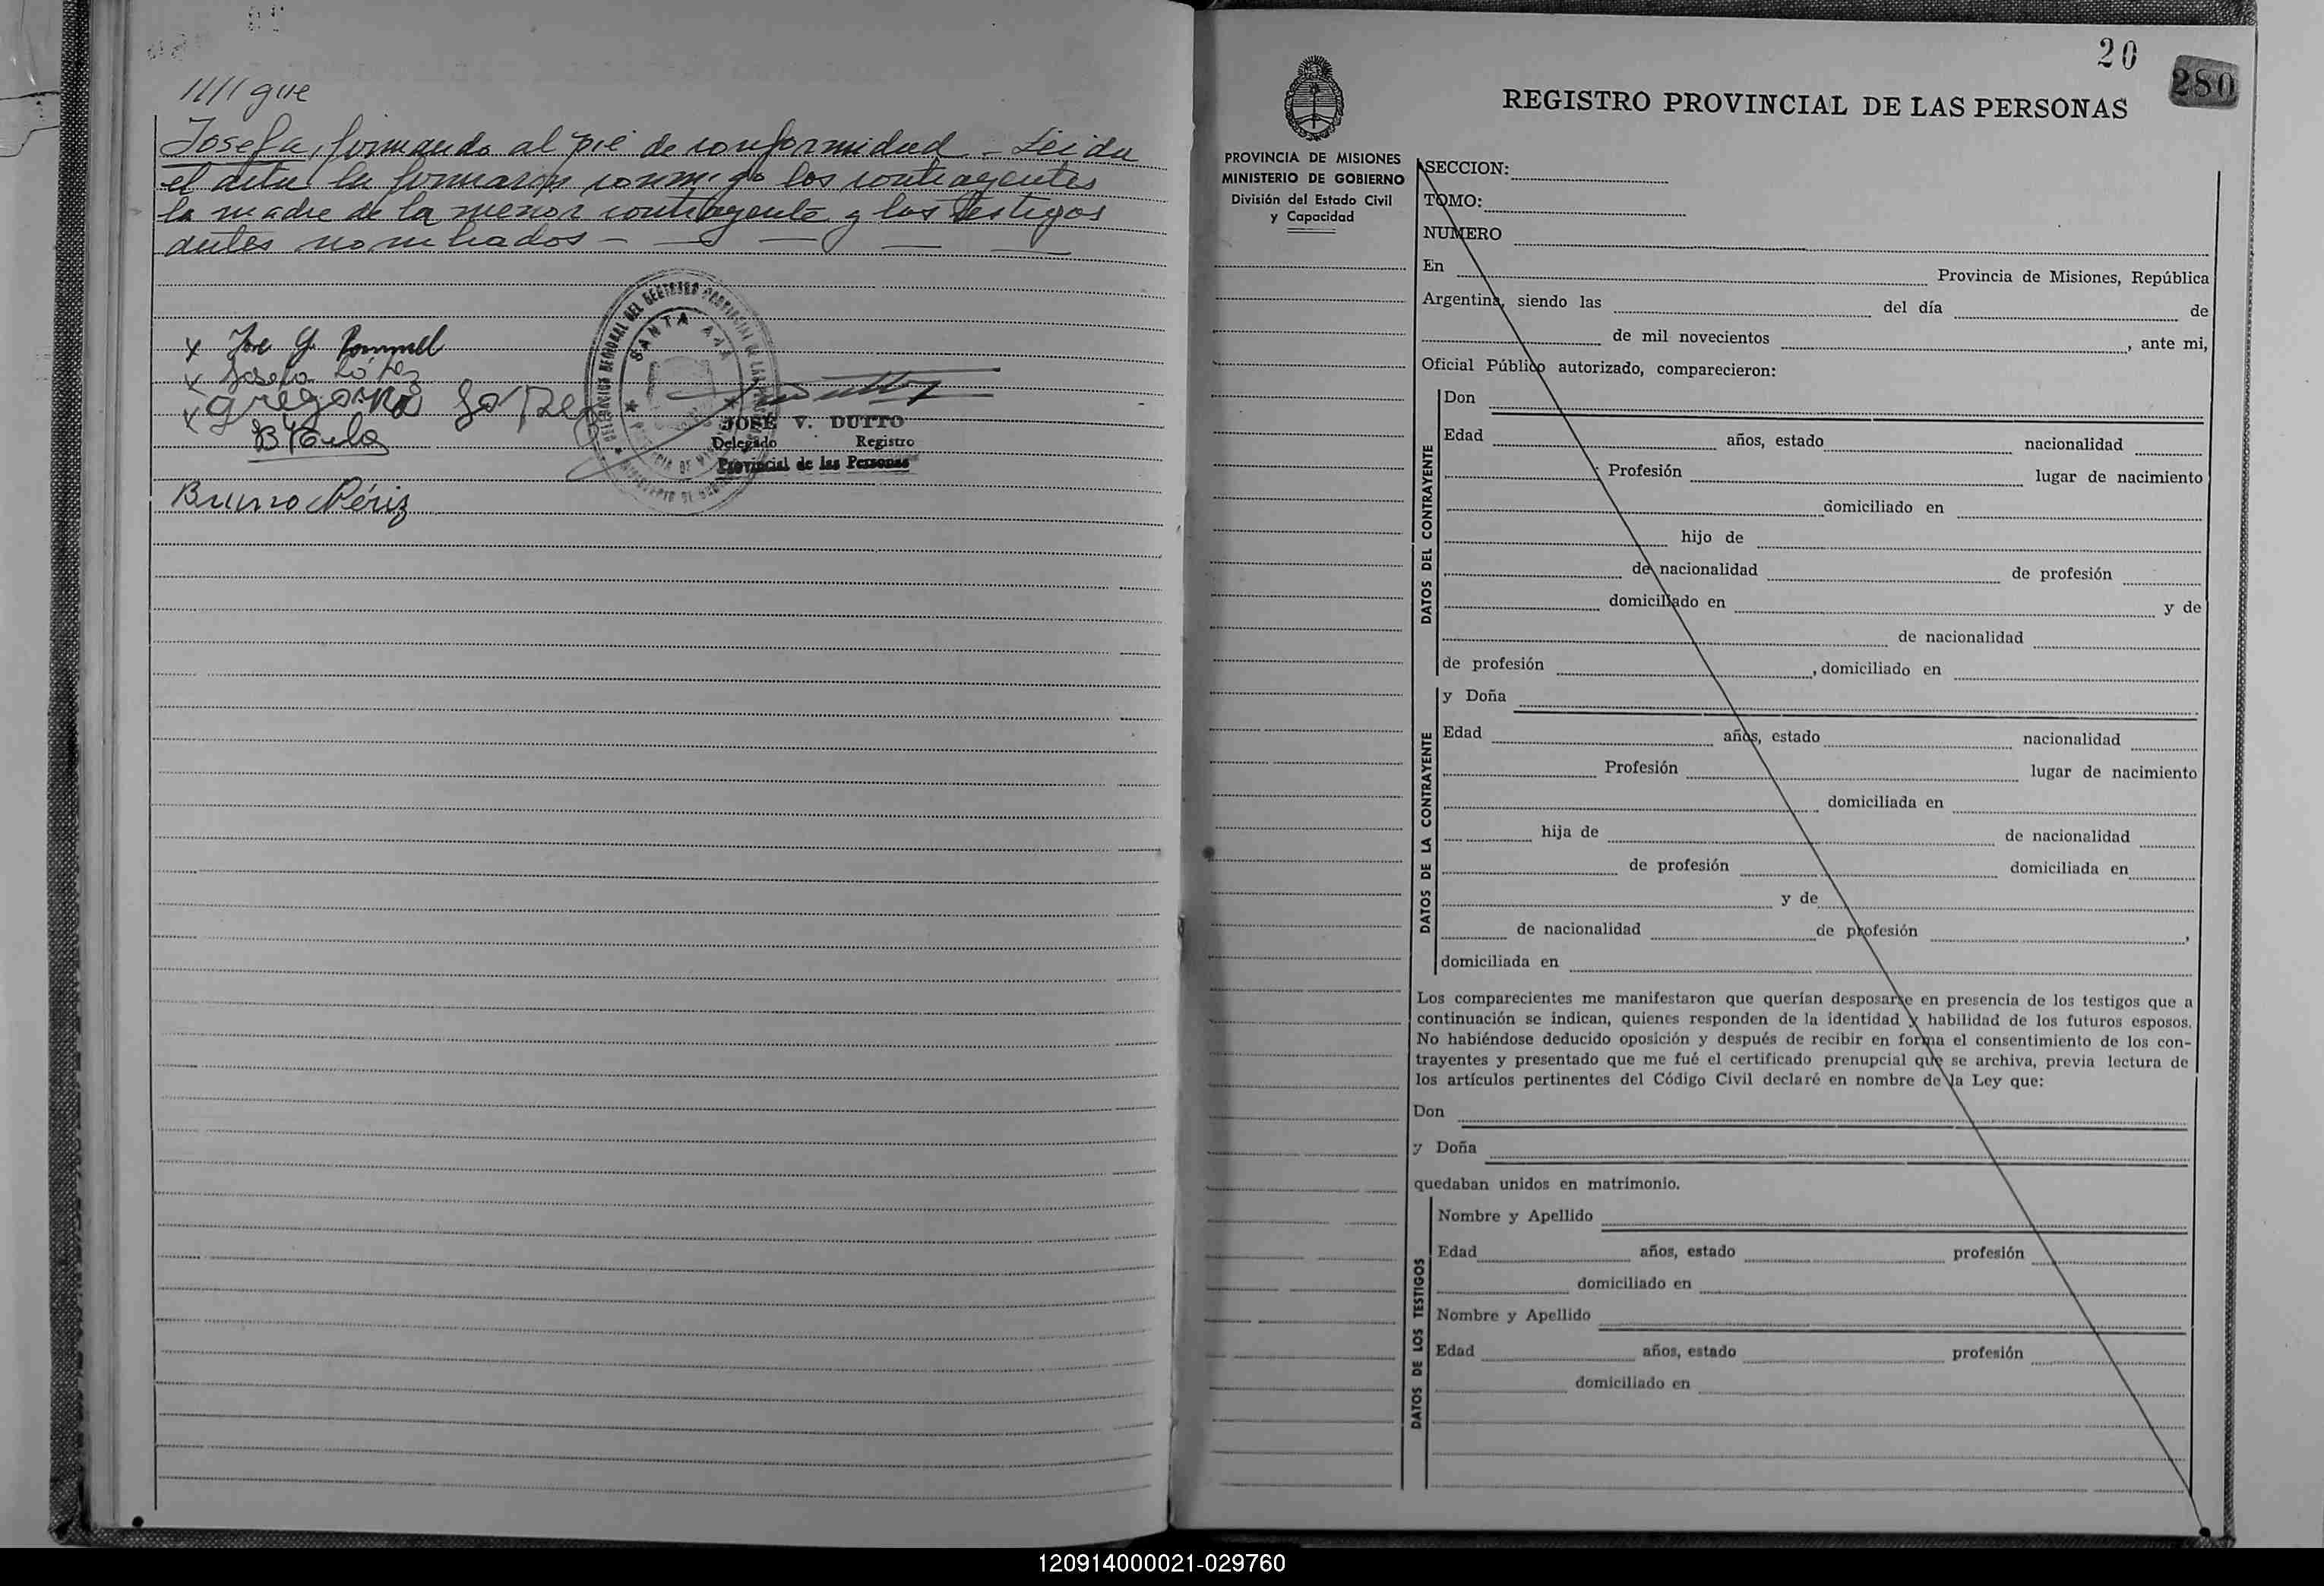 //// que
Josefa, firmando al pié de conformidad - Leida
el acta la firmaron conmigo los contrayentes
la madre de la menor contrayente y los testigos
antes nombrados -
x Jose G. Rommel
x Josefa López
x gregoria Lopez
Bruno Périz
DELEGACION SECCIONAL DEL REGISTRO PROVINCIAL DE LAS PERSONAS
SANTA ANA
JOSÉ V. DUTTO
Delegado Registro
Provincial de las Personas
20
280
REGISTRO PROVINCIAL DE LAS PERSONAS
PROVINCIA DE MISIONES
MINISTERIO DE GOBIERNO
División del Estado Civil
y Capacidad
SECCION:
TOMO:
NUMERO
En Provincia de Misiones, República
Argentina, siendo las del día de
de mil novecientos , ante mi,
Oficial Público autorizado, comparecieron:
DATOS DEL CONTRAYENTE
Don
Edad años, estado nacionalidad
Profesión lugar de nacimiento
domiciliado en
hijo de
de nacionalidad de profesión
domiciliado en y de
de nacionalidad
de profesión , domiciliado en
DATOS DE LA CONTRAYENTE
y Doña
Edad años, estado nacionalidad
Profesión lugar de nacimiento
domiciliada en
hija de de nacionalidad
de profesión domiciliada en
y de
de nacionalidad de profesión ,
domiciliada en
Los comparecientes me manifestaron que querían desposarse en presencia de los testigos que a
continuación se indican, quienes responden de la identidad y habilidad de los futuros esposos.
No habiéndose deducido oposición y después de recibir en forma el consentimiento de los con-
trayentes y presentado que me fué el certificado prenupcial que se archiva, previa lectura de
los artículos pertinentes del Código Civil declaré en nombre de la Ley que:
Don
y Doña
quedaban unidos en matrimonio.
DATOS DE LOS TESTIGOS
Nombre y Apellido
Edad años, estado profesión
domiciliado en
Nombre y Apellido
Edad años, estado profesión
domiciliado en
120914000021-029760